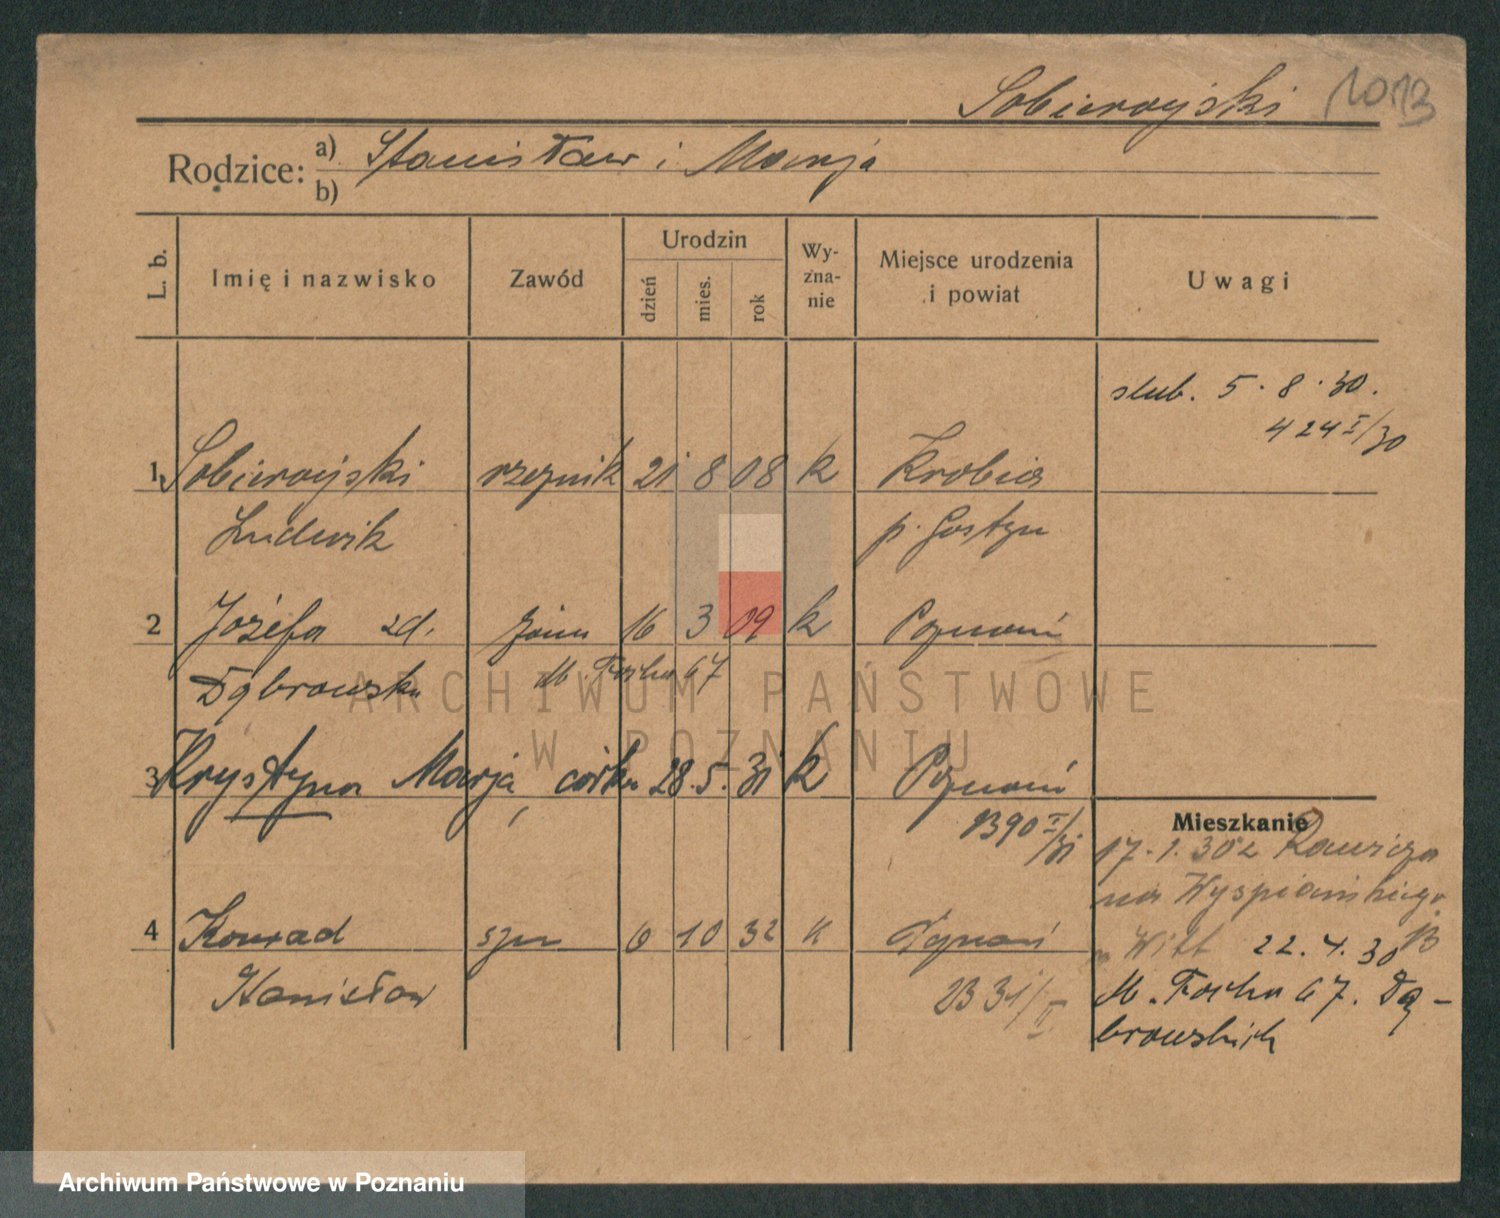 Sobierajski 1013
Rodzice: a) Stanisław i Marja
b)
L. b. Imię i nazwisko Zawód Urodzin dzień mies. rok Wy-zna-nie Miejsce urodzenia i powiat Uwagi
ślub. 5. 8. 30.
424 I/30
1 Sobierajski rzeźnik 21 8 08 k Krobia
Ludwik p. Gostyń
2 Józefa zd. żona 16 3 09 k Poznań
Dąbrowska M. Focha 67
ARCHIWUM PAŃSTWOWE
W POZNANIU
3 Krystyna Marja, córka 28. 5. 31 k Poznań
1390 I/31
Mieszkanie
17. 1. 30 z Rawicza
na Wyspiańskiego
4 Konrad syn 6 10 32 k Poznań
Stanisław 2331/II
Witt 22. 4. 30
M. Focha 67. Dą-
browskich
Archiwum Państwowe w Poznaniu